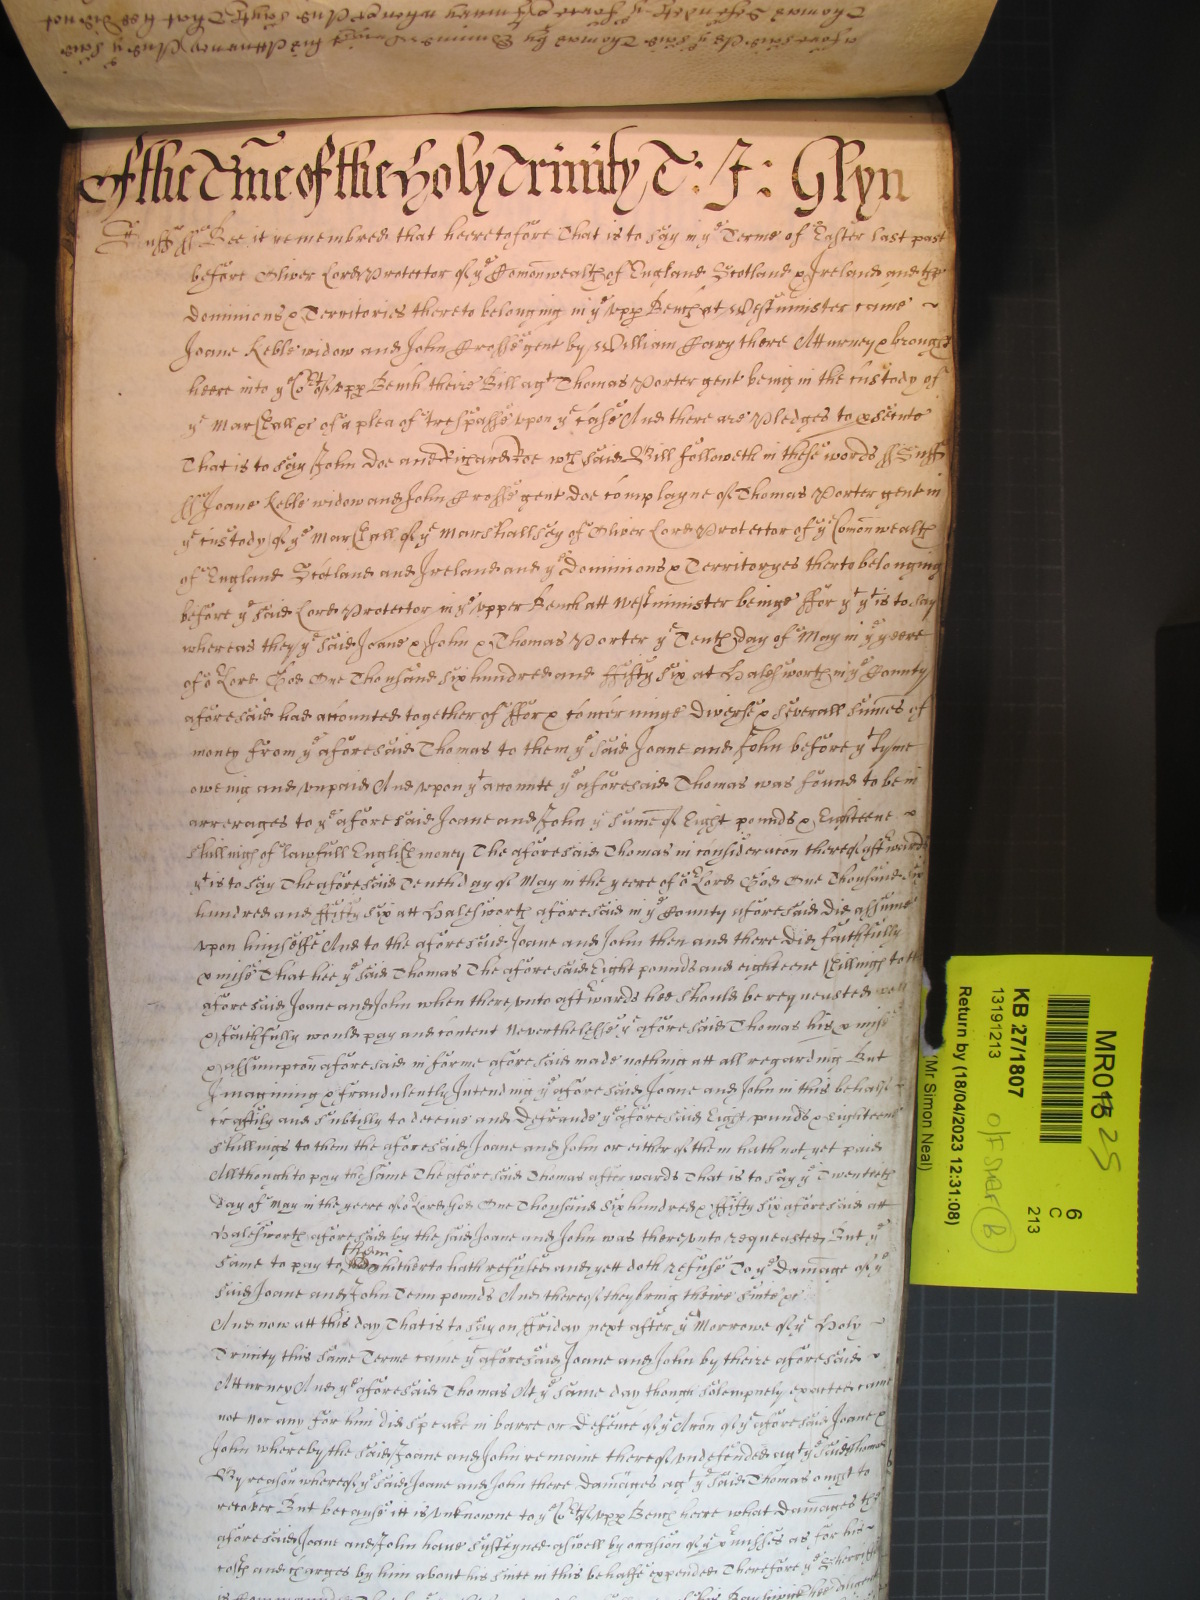 Of the T͞me of the Holy Trinity T: J: Glyn
Suff ss Bee it remembred that heeretofore That is to say in ye Terme of Easter last past
before Oliver Lord Protector of ye Comonwealth of England Scotland & Ireland and the
Dominions & Territories thereto belonging in ye upp Bench at Westminister came ~
Joane Keble widow and John Crosse gent by William Cary there Atturney & brought
heere into ye Cort of upp Bench theire Bill agt Thomas Porter gent being in the custody of
ye Marshall &c of a plea of trespasse upon ye case And there are Pledges to psecute
That is to say John Doe and Richard Roe wch said Bill followeth in these words ss Suff
ss Joane Keble widow and John Crosse gent doe complayne of Thomas Porter gent in
ye custody of ye Marshall of ye Marshallsey of Oliver Lord Protector of ye Comonwealth
of England Scotland and Ireland and ye Dominions & Territoryes therto belonging
before ye said Lord Protector in ye upper Bench att Westminister beinge ffor yt yt is to say
whereas they ye said Joane & John & Thomas Porter ye Tenth day of May in ye yeere
of or Lord God One Thousand six hundred and ffifty six at Halesworth in ye County
aforesaid had accounted together of ffor & concerninge diverse & severall sumes of
money from ye aforesaid Thomas to them ye said Joane and John before yt tyme
oweing and unpaid And upon yt accounte ye aforesaid Thomas was found to be in
arrerages to ye aforesaid Joane and John ye sume of Eight pounds & Eighteene ~
shillings of lawfull English money The aforesaid Thomas in consideracon thereof aftwards
yt is to say The aforesaid Tenth day of May in the yeere of or Lord God One Thousand Six
hundred and ffifty six att Halesworth aforesaid in ye County aforesaid did assume
upon himselfe And to the aforesaid Joane and John then and there did faithfully
pmise That hee ye said Thomas The aforesaid Eight pounds and eighteene shillings to the
aforesaid Joane and John when thereunto aftwards hee should be requeasted well
& faithfully would pay and content Neverthelesse ye aforesaid Thomas his pmise
& assumpcon aforesaid in forme aforesaid made nothing att all regarding But
Imagining & fraudulently Intending ye aforesaid Joane and John in this behalfe ~
craftily and subtilly to deceive and defraude ye aforesaid Eight pounds & Eighteene
shillings to them the aforesaid Joane and John or either of them hath not yet paid
Although to pay the same The aforesaid Thomas afterwards That is to say ye Twenteith
day of May in the yeere of or Lord God One Thousand Six hundred & ffifty six aforesaid att
Halesworth aforesaid by the said Joane and John was thereunto requeasted But ye
same to pay to them hitherto hath refused and yett doth refuse To ye damage of ye
said Joane and John Tenn pounds And thereof they bring theire suite &c
And now att this day That is to say on ffriday next after ye Morrowe of ye Holy ~
Trinity this same Terme came ye aforesaid Joane and John by theire aforesaid ~
Atturney And ye aforesaid Thomas At ye same day though solempnely exacted came
not nor any for him did speake in barre or defence of ye Accon of ye aforesaid Joane &
John whereby the said Joane and John remaine thereof undefended agt ye said Thomas
By reason whereof ye said Joane and John there damages agt ye said Thomas ought to
recover But because itt is unknowne to ye Cort of upp Bench heere what damages the
aforesaid Joane and John have susteyned aswell by occasion of ye pmisses as for his ~
costs and charges by him about his suite in this behalfe expended Therefore ye Sherriffe
MR018 25
6
C
213
KB 27/1807
13191213
Return by (18/04/2023 12:31:08)
(Mr Simon Neal)